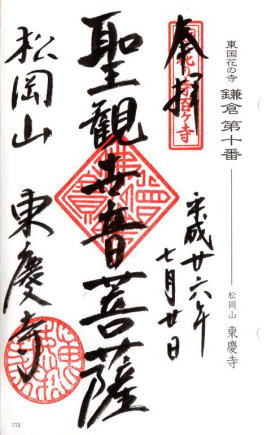 東国花の寺 鎌倉 第十番 ― 松岡山 東慶寺
奉拝
平成廿六年
七月廿日
聖観世音菩薩
松岡山 東慶寺
113